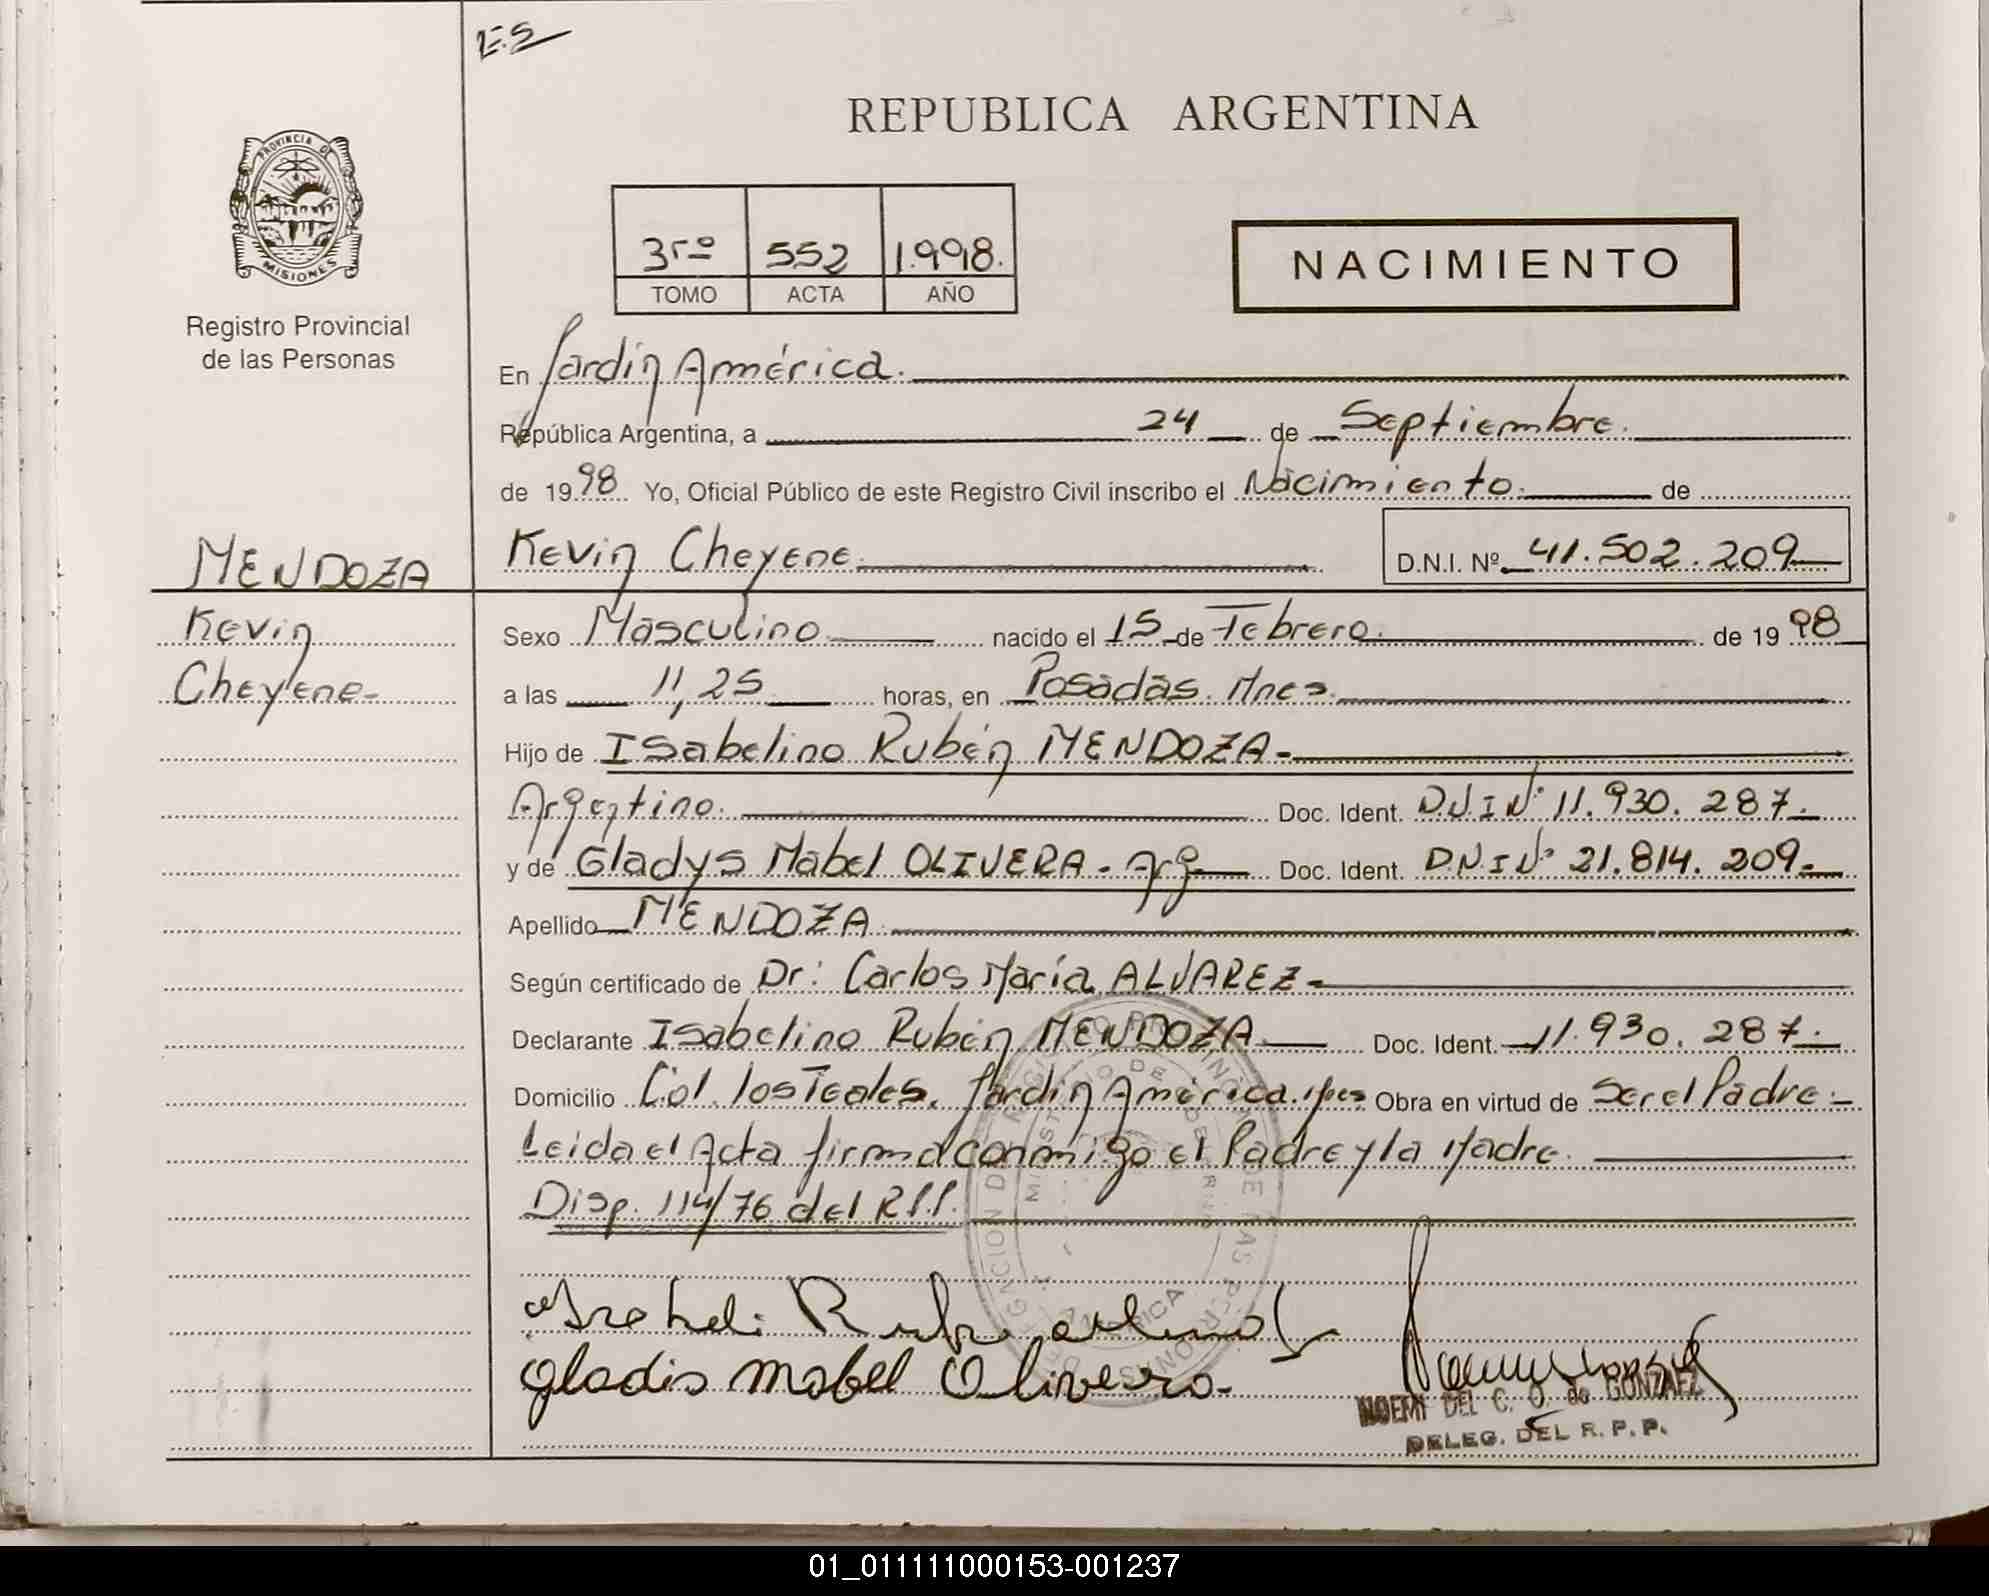 E.S
REPUBLICA ARGENTINA
PROVINCIA DE
MISIONES
Registro Provincial
de las Personas
3ro 552 1.998.
TOMO ACTA AÑO
NACIMIENTO
En Jardín América.
República Argentina, a 24 de Septiembre.
de 1998 Yo, Oficial Público de este Registro Civil inscribo el Nacimiento. de
MENDOZA
Kevin
Cheyene-
Kevin Cheyene D.N.I. Nº 41.502.209
Sexo Masculino nacido el 15 de Febrero. de 1998
a las 11,25 horas, en Posadas. Mnes.
Hijo de Isabelino Rubén MENDOZA-
Argentino. Doc. Ident. D.N.I Nº 11.930.287.
y de Gladys Mabel OLIVERA - Arg Doc. Ident. D.N.I Nº 21.814.209-
Apellido MENDOZA
Según certificado de Dr: Carlos María ALVAREZ-
Declarante Isabelino Rubén MENDOZA Doc. Ident. 11.930.287.
Domicilio Col. los Teales. Jardín América. Mnes Obra en virtud de Ser el Padre-
Leida el Acta firma conmigo el Padre y la Madre.
Disp. 114/76 del R.P.P.
Gladis Mabel Olivera.
NOEMI DEL C. O. de GONZALEZ
DELEG. DEL R. P. P.
01_011111000153-001237